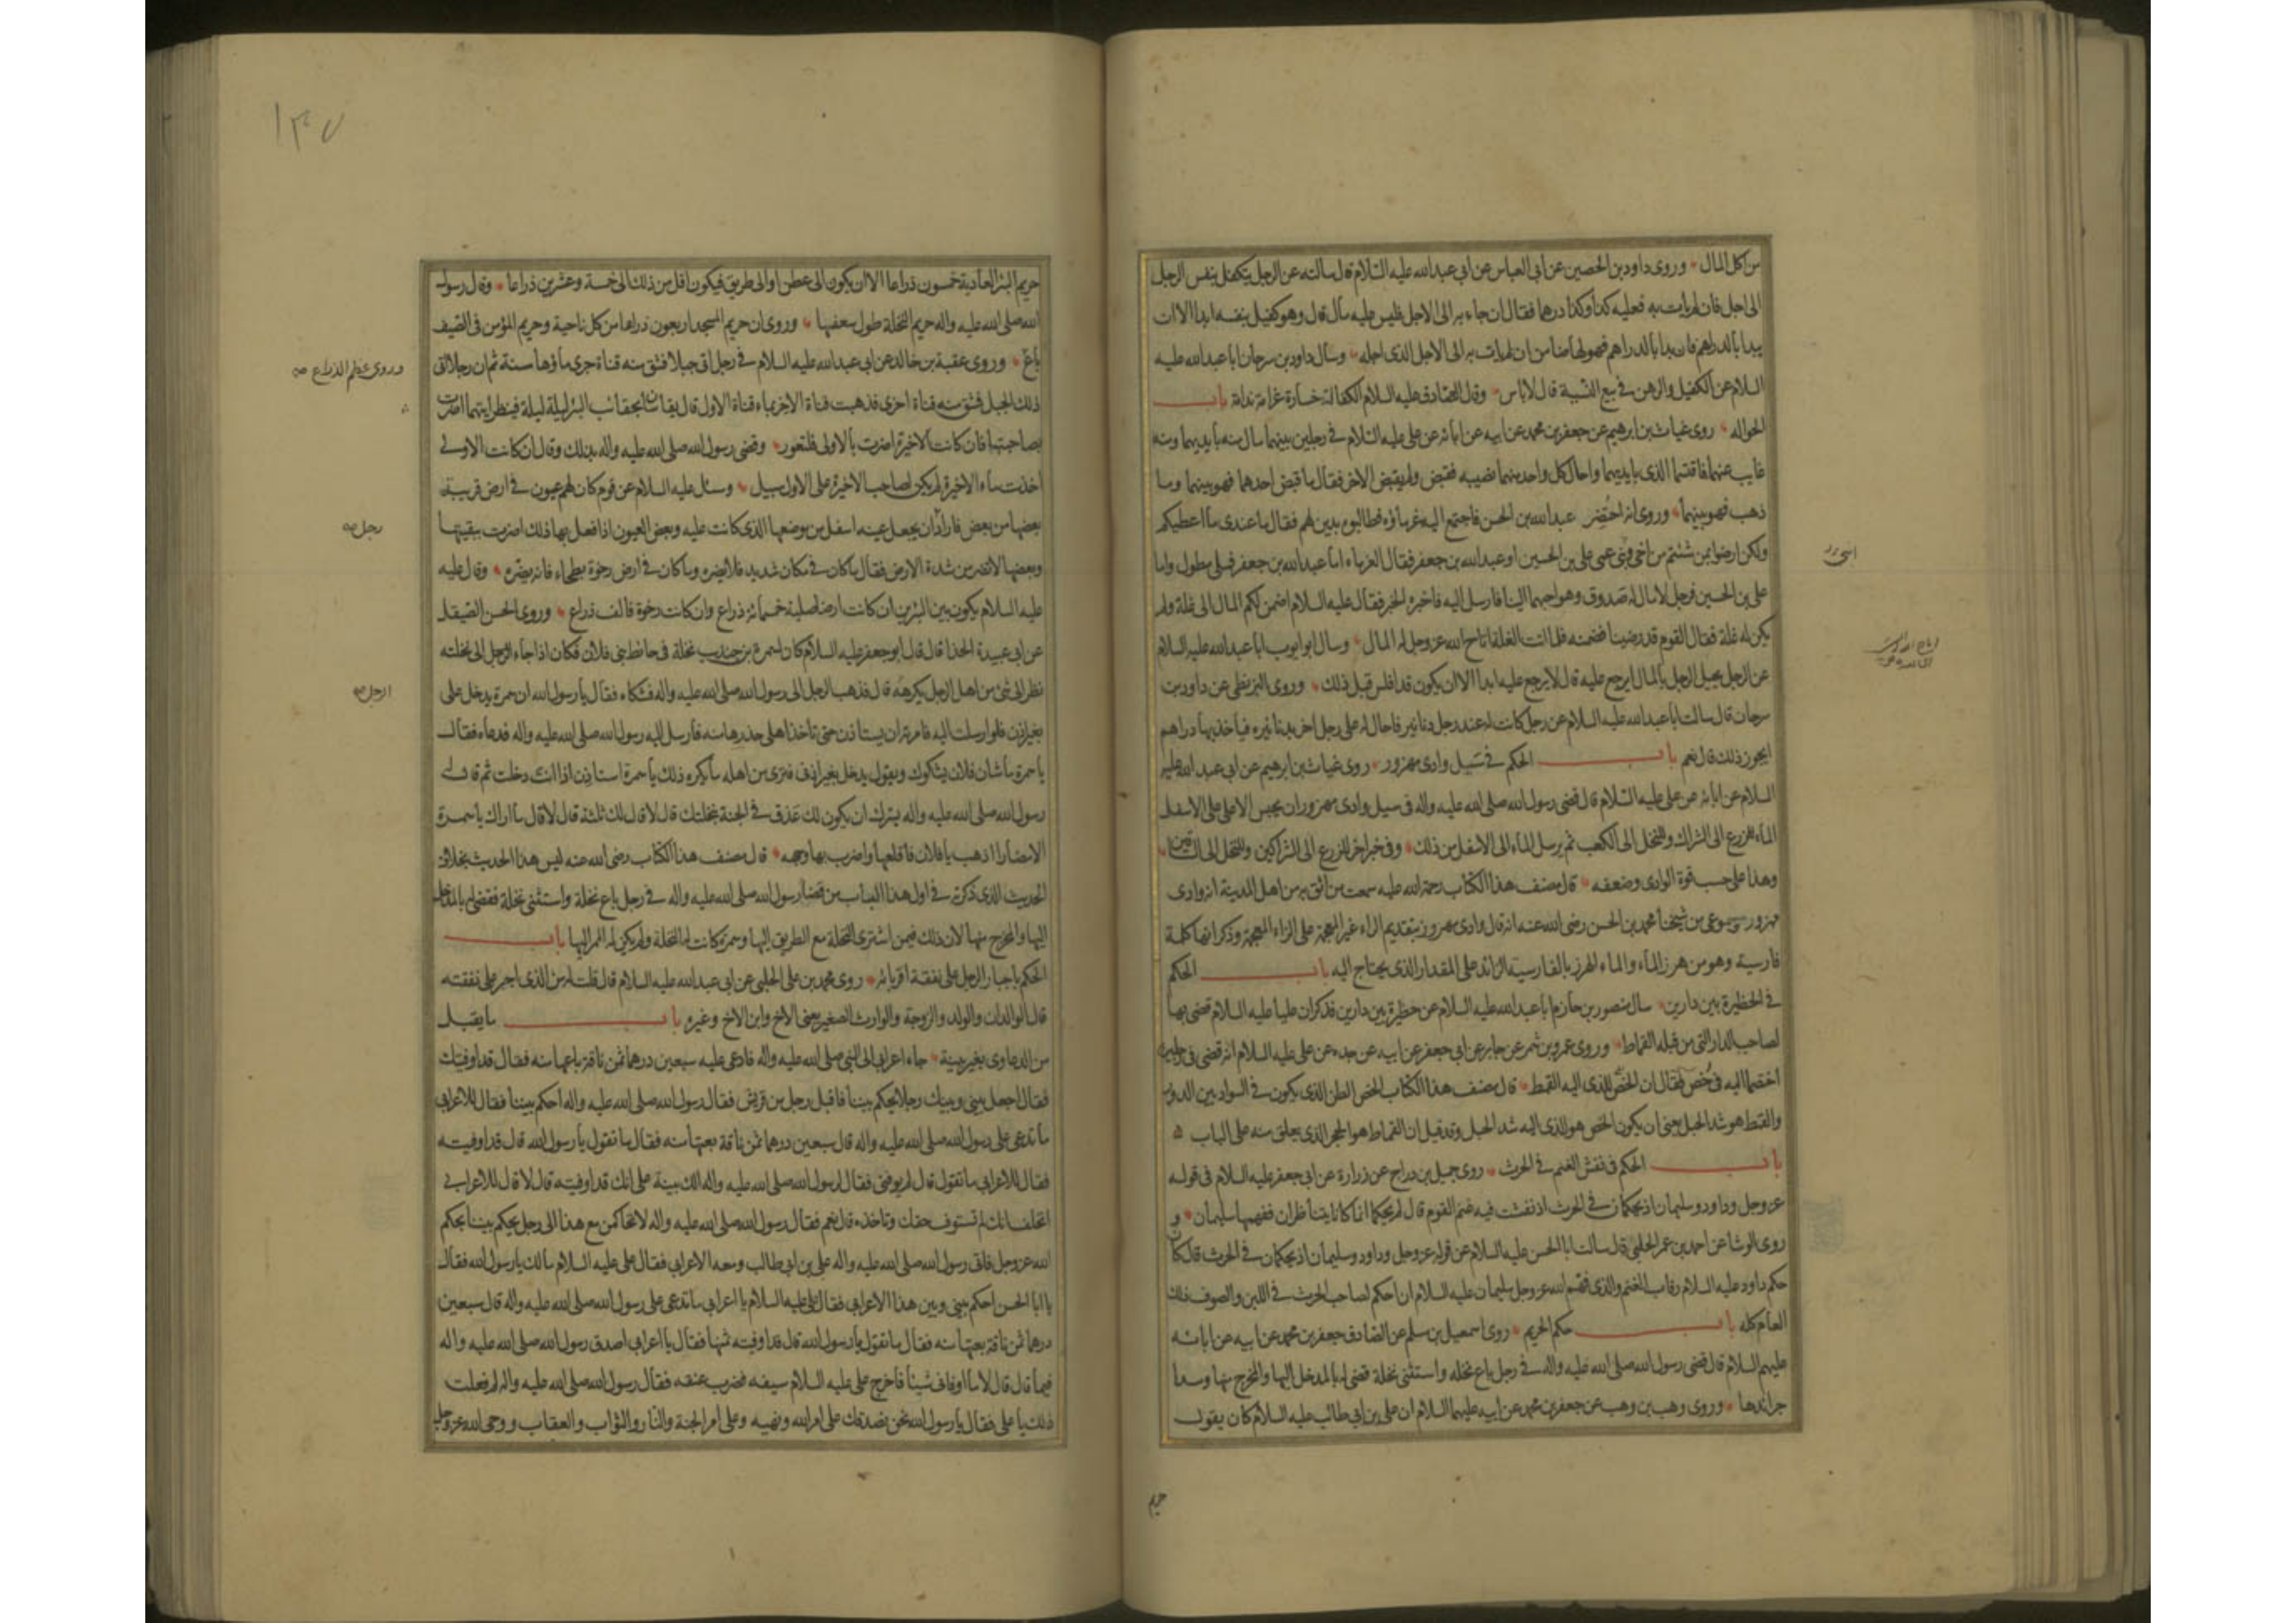 من كل المال وروى داود بن الحصين عن ابى العباس عن ابى عبد الله عليه السلام قال سالته عن الرجل يتكفل بنفس الرجل
الى اجل فان لم يات به فعليه كذا وكذا درهما فقال ان جاء به الى الاجل فليس عليه مال قال وهو كفيل بنفسه ابدا الا ان
يبدا بالدراهم فان بدا بالدراهم فهو لها ضامن ان لم يات به الى الاجل الذى اجله وسال داود بن سرحان ابا عبد الله عليه
السلام عن الكفيل والرهن فى بيع النسية قال لا باس وقال الصادق عليه السلام الكفالة خسارة غرامة ندامة باب
الحواله روى غياث بن ابرهيم عن جعفر بن محمد عن ابيه عن ابائه عن على عليه السلام فى رجلين بينهما مال منه بايديهما ومنه
غايب عنهما فاقتسما الذى بايديهما واحال كل واحد منهما نصيبه فقبض ولم يقبض الاخر فقال ما قبض احدهما فهو بينهما وما
ذهب فهو بينهما وروى انه احتضر عبد الله بن الحسن فاجتمع اليه غرماؤه فطالبوه بدين لهم فقال ما عندى ما اعطيكم
ولكن ارضوا بمن شئتم من اخى وبنى عمى على بن الحسين او عبد الله بن جعفر فقال الغرماء اما عبد الله بن جعفر فملى مطول واما
على بن الحسين فرجل لا مال له صدوق وهو احبهما الينا فارسل اليه فاخبره الخبر فقال عليه السلام اضمن لكم المال الى غلة ولم
يكن له غلة فقال القوم قد رضينا فضمنه فلما اتت الغلة اتاح الله عز وجل له المال وسال ابو ايوب ابا عبد الله عليه السلام
عن الرجل يحيل الرجل بالمال ايرجع عليه قال لا يرجع عليه ابدا الا ان يكون قد افلس قبل ذلك وروى البزنطى عن داود بن
سرحان قال سالت ابا عبد الله عليه السلام عن رجل كانت له عند رجل دنانير فاحال له على رجل اخر بدنانيره فياخذ بها دراهم
ايجوز ذلك قال نعم باب الحكم فى سيل وادى مهزور روى غياث بن ابرهيم عن ابى عبد الله عليه
السلام عن ابائه عن على عليه السلام قال قضى رسول الله صلى الله عليه واله فى سيل وادى مهزور ان يحبس الاعلى على الاسفل
الماء للزرع الى الشراك وللنخل الى الكعب ثم يرسل الماء الى الاسفل من ذلك وفى خبر اخر للزرع الى الشراكين وللنخل الى الساقين
وهذا على حسب قوة الوادى وضعفه قال مصنف هذا الكتاب رحمة الله عليه سمعت من اثق به من اهل المدينة انه وادى
مهزور ومسموعى من شيخنا محمد بن الحسن رضى الله عنه انه قال وادى مهروز بتقديم الراء غير المعجمة على الزاء المعجمة وذكر انها كلمة
فارسية وهو من هرز الماء والماء الهرز بالفارسية الزائد على المقدار الذى يحتاج اليه باب الحكم
فى الحظيرة بين دارين سال منصور بن حازم ابا عبد الله عليه السلام عن حظيرة بين دارين فذكر ان عليا عليه السلام قضى بها
لصاحب الدار التى من قبله القماط وروى عمرو بن شمر عن جابر عن ابى جعفر عن ابيه عن جده عن على عليه السلام انه قضى فى رجلين
اختصما اليه فى خص فقال ان الخص للذى اليه القمط قال مصنف هذا الكتاب الخص الطن الذى يكون فى السواد بين الدور
والقمط هو شد الحبل يعنى ان يكون الخص هو للذى اليه شد الحبل وقد قيل ان القماط هو الحجر الذى يعلق منه على الباب
باب الحكم فى نفش الغنم فى الحرث روى جميل بن دراج عن زرارة عن ابى جعفر عليه السلام فى قوله
عز وجل وداود وسليمان اذ يحكمان فى الحرث اذ نفشت فيه غنم القوم قال لم يحكما انما كانا يتناظران ففهمها سليمان و
روى الوشا عن احمد بن عمر الحلبى قال سالت ابا الحسن عليه السلام عن قوله عز وجل وداود وسليمان اذ يحكمان فى الحرث قال كان
حكم داود عليه السلام رقاب الغنم والذى فهم الله عز وجل سليمان عليه السلام ان احكم لصاحب الحرث فى اللبن والصوف ذلك
العام كله باب حكم الحريم روى اسمعيل بن مسلم عن الصادق جعفر بن محمد عن ابيه عن ابائه
عليهم السلام قال قضى رسول الله صلى الله عليه واله فى رجل باع نخله واستثنى نخلة قضى له بالمدخل اليها والمخرج منها ومدا
جرائدها وروى وهب بن وهب عن جعفر بن محمد عن ابيه عليهما السلام ان على بن ابى طالب عليه السلام كان يقول
حريم
١٣٧
حريم البئر العادية خمسون ذراعا الا ان يكون الى عطن او الى طريق فيكون اقل من ذلك الى خمسة وعشرين ذراعا وقال رسول
الله صلى الله عليه واله حريم النخلة طول سعفها وروى ان حريم المسجد اربعون ذراعا من كل ناحية وحريم المؤمن فى الصيف
باع وروى عقبة بن خالد عن ابى عبد الله عليه السلام فى رجل اتى جبلا فشق منه قناة جرى ماؤها سنة ثم ان رجلا اتى
وروى عظم الذراع صه
ذلك الجبل فشق منه قناة اخرى فذهبت قناة الاخر بماء قناة الاول قال يقاسان بحقائب البئر ليلة ليلة فينظر ايتهما اضرت
بصاحبتها فان كانت الاخيرة اضرت بالاولى فلتعور وقضى رسول الله صلى الله عليه واله بذلك وقال ان كانت الاولى
اخذت ماء الاخيرة لم يكن لصاحب الاخيرة على الاول سبيل وسئل عليه السلام عن قوم كان لهم عيون فى ارض قريبة
بعضها من بعض فاراد ان يجعل عينه اسفل من موضعها الذى كانت عليه وبعض العيون اذا فعل بها ذلك اضرت ببقيتها
رجل صه
وبعضها لا تضر من شدة الارض فقال ما كان فى مكان شديد فلا يضره وما كان فى ارض رخوة بطحاء فانه يضره وقال عليه
عليه السلام يكون بين البئرين ان كانت ارضا صلبة خمسمائة ذراع وان كانت رخوة فالف ذراع وروى الحسن الصيقل
عن ابى عبيدة الحذا قال قال ابو جعفر عليه السلام كان لسمرة بن جندب نخلة فى حائط بنى فلان فكان اذا جاء الرجل الى نخلته
نظر الى شئ من اهل الرجل يكرهه قال فذهب الرجل الى رسول الله صلى الله عليه واله فشكاه فقال يا رسول الله ان سمرة يدخل على
الرجل صه
بغير اذن فلو ارسلت اليه فامرته ان يستاذن حتى تاخذ اهلى حذرها منه فارسل اليه رسول الله صلى الله عليه واله فدعاه فقال
يا سمرة ما شان فلان يشكوك ويقول يدخل بغير اذنى فترى من اهله ما يكره ذلك يا سمرة استاذن اذا انت دخلت ثم قال له
رسول الله صلى الله عليه واله يسرك ان يكون لك عذق فى الجنة بنخلتك قال لا قال لك ثلثة قال لا قال ما اراك يا سمرة
الا مضارا اذهب يا فلان فاقلعها واضرب بها وجهه قال مصنف هذا الكتاب رضى الله عنه ليس هذا الحديث بخلاف
الحديث الذى ذكرته فى اول هذا الباب من قضاء رسول الله صلى الله عليه واله فى رجل باع نخلة واستثنى نخلة فقضى له بالمدخل
اليها والمخرج منها لان ذلك فيمن اشترى النخلة مع الطريق اليها وسمرة كانت له النخلة ولم يكن له الممر اليها باب
الحكم باجبار الرجل على نفقة اقربائه روى محمد بن على الحلبى عن ابى عبد الله عليه السلام قال قلت له من الذى اجبر على نفقته
قال الوالدان والولد والزوجة والوارث الصغير يعنى الاخ وابن الاخ وغيره باب ما يقبل
من الدعاوى بغير بينة جاء اعرابى الى النبى صلى الله عليه واله فادعى عليه سبعين درهما ثمن ناقة باعها منه فقال قد اوفيتك
فقال اجعل بينى وبينك رجلا يحكم بيننا فاقبل رجل من قريش فقال رسول الله صلى الله عليه واله احكم بيننا فقال للاعرابى
ما تدعى على رسول الله صلى الله عليه واله قال سبعين درهما ثمن ناقة بعتها منه فقال ما تقول يا رسول الله قال قد اوفيته
فقال للاعرابى ما تقول قال لم يوفنى فقال لرسول الله صلى الله عليه واله الك بينة على انك قد اوفيته قال لا قال للاعرابى
اتحلف انك لم تستوف حقك وتاخذه قال نعم فقال رسول الله صلى الله عليه واله لا تحاكمن مع هذا الى رجل يحكم بيننا بحكم
الله عز وجل فاتى رسول الله صلى الله عليه واله على بن ابى طالب ومعه الاعرابى فقال على عليه السلام مالك يا رسول الله فقال
يا ابا الحسن احكم بينى وبين هذا الاعرابى فقال على عليه السلام يا اعرابى ما تدعى على رسول الله صلى الله عليه واله قال سبعين
درهما ثمن ناقة بعتها منه فقال ما تقول يا رسول الله قال قد اوفيته ثمنها فقال يا اعرابى اصدق رسول الله صلى الله عليه واله
فيما قال قال لا ما اوفانى شيئا فاخرج على عليه السلام سيفه فضرب عنقه فقال رسول الله صلى الله عليه واله لم فعلت
ذلك يا على فقال يا رسول الله نحن نصدقك على امر الله ونهيه وعلى امر الجنة والنار والثواب والعقاب ووحى الله عز وجل